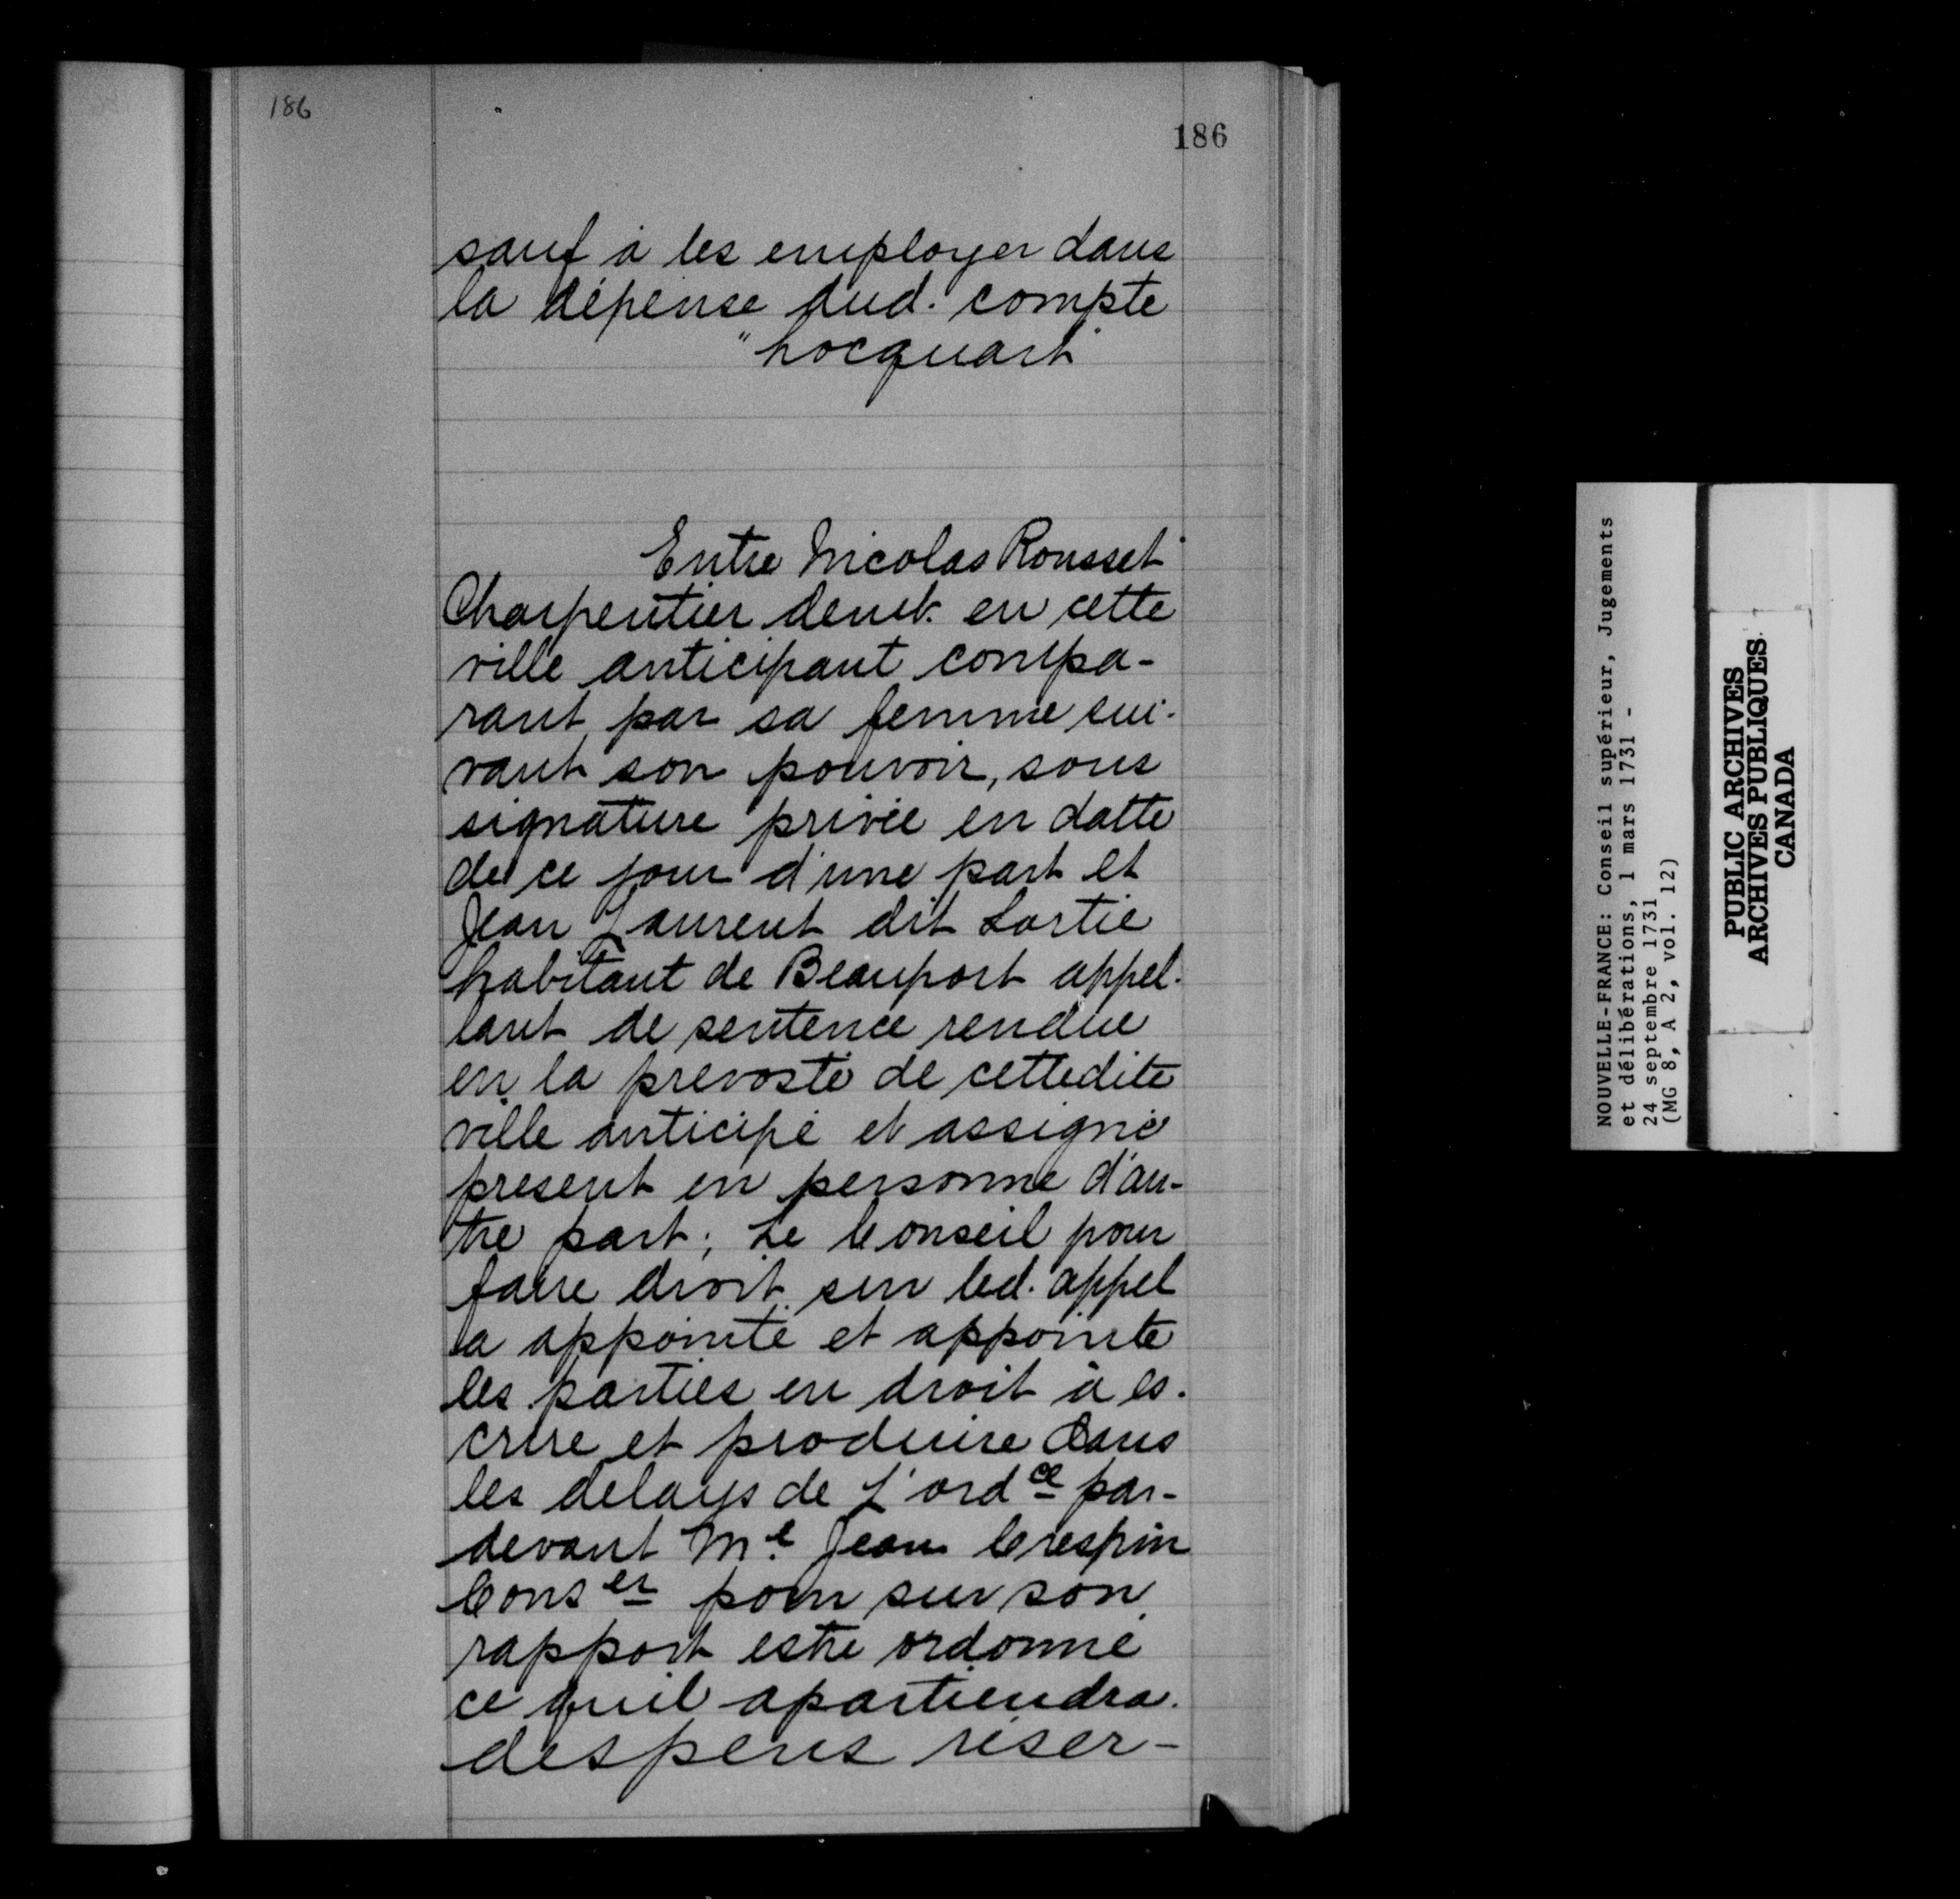 186
186
sauf à les employer dans
la dépense dud. compte
"hocquart"
Entre Nicolas Rousset
Charpentier demt. en cette
ville anticipant compa-
rant par sa femme sui-
vant son pouvoir, sous
signature privée en datte
de ce jour d'une part et
Jean Laurent dit Lortie
habitant de Beauport appel-
lant de sentence rendue
en la prevosté de cettedite
ville anticipé et assigné
present en personne d'au-
tre part; Le Conseil pour
faire droit sur led. appel
a appointé et appointe
les parties en droit à es-
crire et produire dans
les delays de L'ordce par-
devant Me Jean Crespin
Conser pour sur son
rapport estre ordonné
ce quil apartiendra.
despens réser-
NOUVELLE-FRANCE: Conseil supérieur, Jugements
et délibérations, 1 mars 1731 -
24 septembre 1731
(MG 8, A 2, vol. 12)
PUBLIC ARCHIVES
ARCHIVES PUBLIQUES
CANADA